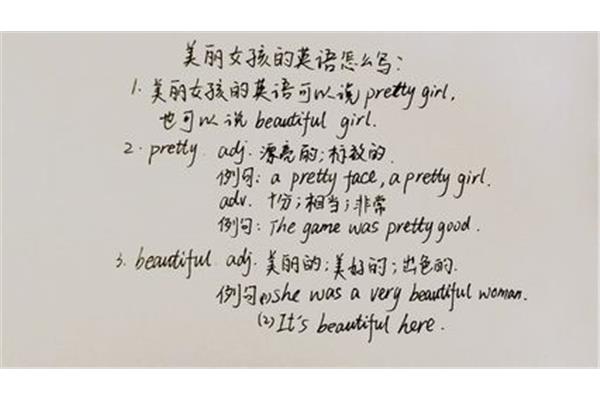 美丽女孩的英语怎么写:
1. 美丽女孩的英语可以说 pretty girl,
也可以说 beautiful girl.
2. pretty. adj. 漂亮的;标致的.
例句: a pretty face, a pretty girl.
adv. 十分;相当;非常
例句: The game was pretty good.
3. beautiful. adj. 美丽的;美好的;出色的.
例句(1) she was a very beautiful woman.
(2) It's beautiful here.